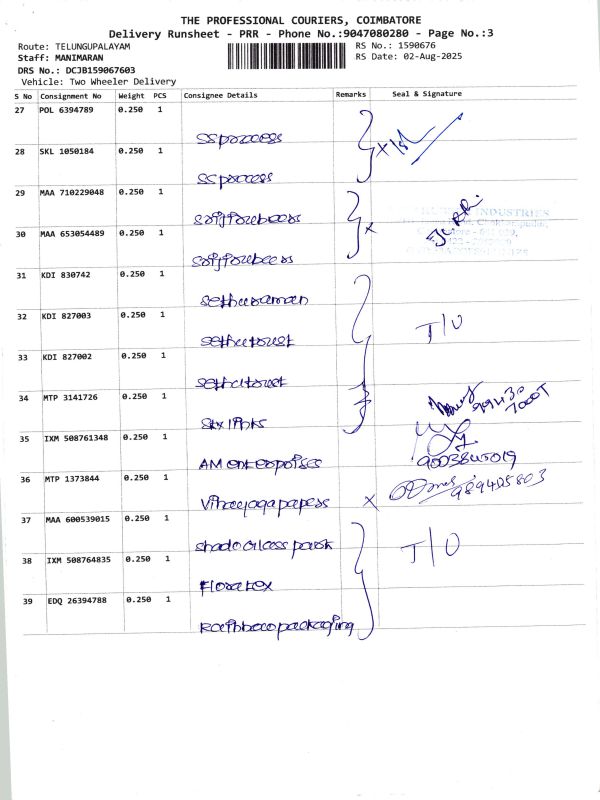 THE PROFESSIONAL COURIERS, COIMBATORE
Delivery Runsheet - PRR - Phone No.:9047080280 - Page No.:3
Route: TELUNGUPALAYAM RS No.: 1590676
Staff: MANIMARAN RS Date: 02-Aug-2025
DRS No.: DCJB159067603
Vehicle: Two Wheeler Delivery
S No Consignment No Weight PCS Consignee Details Remarks Seal & Signature
27 POL 6394789 0.250 1
ss process
28 SKL 1050184 0.250 1
ss process
29 MAA 710229048 0.250 1
INDUSTRIES
30 MAA 653054489 0.250 1
31 KDI 830742 0.250 1
sethuraman
32 KDI 827003 0.250 1
T/U
33 KDI 827002 0.250 1
34 MTP 3141726 0.250 1
35 IXM 508761348 0.250 1
AM enterprises
36 MTP 1373844 0.250 1
37 MAA 600539015 0.250 1
T/U
38 IXM 508764835 0.250 1
Floratex
39 EDQ 26394788 0.250 1
packaging